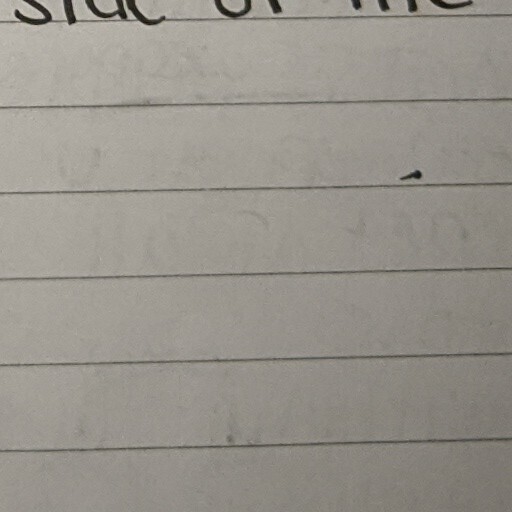 side of the